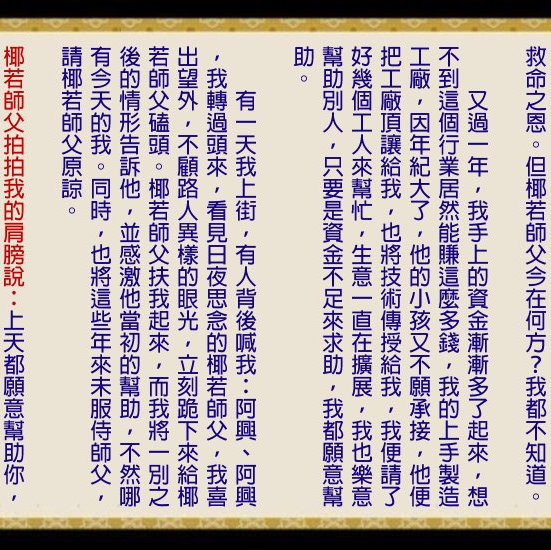 救命之恩。但椰若師父今在何方？我都不知道。
又過一年，我手上的資金漸漸多了起來，想
不到這個行業居然能賺這麼多錢，我的上手製造
工廠，因年紀大了，他的小孩又不願承接，他便
把工廠頂讓給我，也將技術傳授給我，我便請了
好幾個工人來幫忙，生意一直在擴展，我也樂意
幫助別人，只要是資金不足來求助，我都願意幫
助。
有一天我上街，有人背後喊我：阿興、阿興
，我轉過頭來，看見日夜思念的椰若師父，我喜
出望外，不顧路人異樣的眼光，立刻跪下來給椰
若師父磕頭。椰若師父扶我起來，而我將一別之
後的情形告訴他，並感激他當初的幫助，不然哪
有今天的我。同時，也將這些年來未服侍師父，
請椰若師父原諒。
椰若師父拍拍我的肩膀說：上天都願意幫助你，